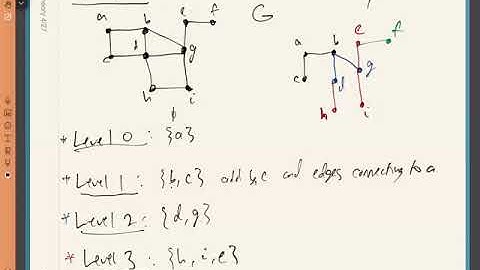 a b e f
d g
h i
G
a b e f
c d g
h i
* Level 0 : {a}
* Level 1 : {b,c} add b,c and edges connecting to a
* Level 2 : {d,g}
* Level 3 : {h,i,e}